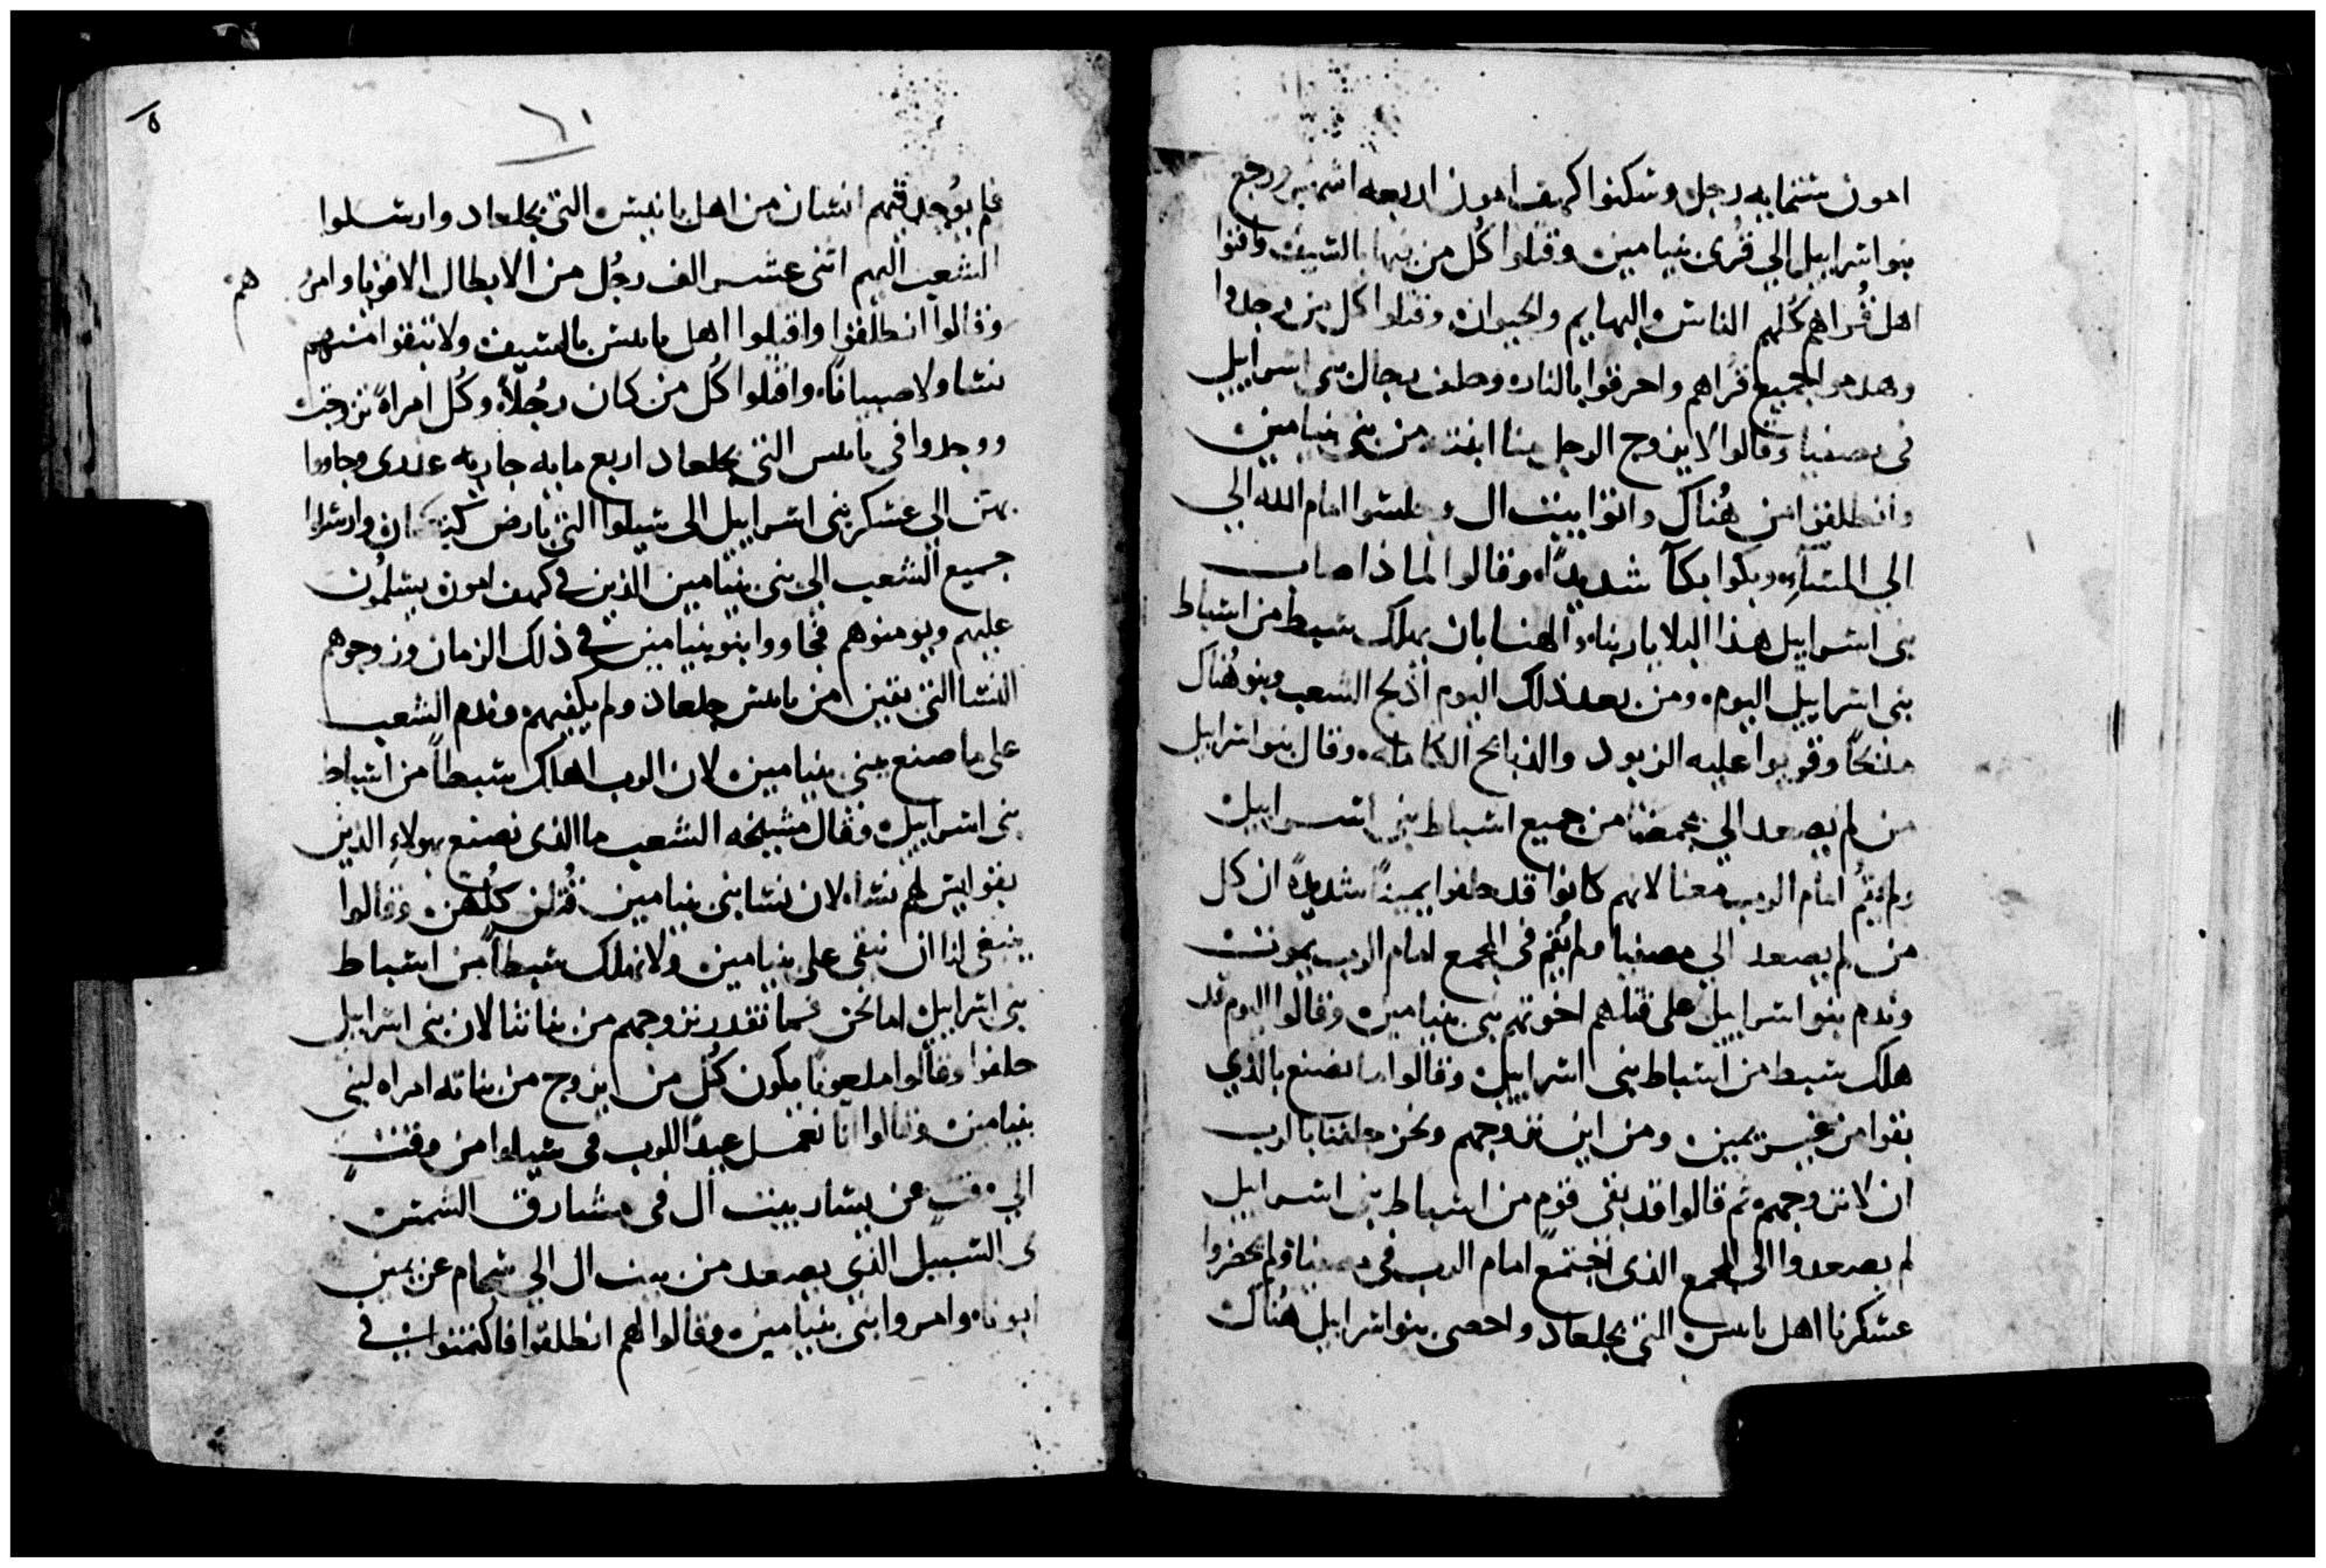 امون ستمايه رجل وسكنوا كهف امون اربعه اشهر ورجع
بنو اسراييل الي قرى بنيامين وقتلوا كل من فيها بالسيف وافنوا
اهل قراهم كلهم الناس والبهايم والحيوان وقتلوا كل من وجدوا
وهدموا جميع قراهم واحرقوا بالنار وحلف رجال بني اسراييل
في مصفيا وقالوا لا يزوج الرجل منا ابنته من بني بنيامين
وانطلقوا من هُناك واتوا بيت ال وجلسوا امام الله الي
الي المساء وبكوا بكآ شديدًا وقالوا لماذا اصاب
بني اسراييل هذا البلا ياربنا والهنا بان يهلك سبط من اسباط
بني اسراييل اليوم ومن بعد ذلك اليوم ادلج الشعب وبنو هُناك
مذبحًا وقربوا عليه الزبود والذبايح الكامله وقال بنو اسراييل
من لم يصعد الي مجمعنا من جميع اسباط بني اسراييل
ولم يقُم امام الرب معنا لانهم كانوا قد حلفوا يمينًا شديدةً ان كل
من لم يصعد الي مصفيا ولم يُقم في المجمع امام الرب يموت
وندم بنو اسراييل على قتلهم اخوتهم بني بنيامين وقالوا اليوم قد
هلك سبط من اسباط بني اسراييل وقالوا ما نصنع بالذي
بقوا من غير يمين ومن اين نزوجهم ونحن حلفنا بالرب
ان لا نزوجهم ثم قالوا قد بقى قوم من اسباط بني اسراييل
لم يصعدوا الى المجمع الذى اجتمع امام الرب في مصفيا ولم يحضروا
عسكرنا اهل يابيس التي بجلعاد واحصى بنو اسراييل هُناك
٦١
فلم يوُجد فيهم انسان من اهل يابيس التي بجلعاد وارسلوا
الشعب اليهم اثنى عشر الف رجُل من الابطال الاقويا وامرُ هم
وقالوا انطلقوا واقتلوا اهل يابيس بالسيف ولا تبقوا منهم
نسا ولا صبيانًا واقتلوا كُل من كان رجُلاً وكُل امراةً تزوجت
ووجدوا في يابيس التي بجلعاد اربع مايه جاريه عذرى وجاووا
بهن الى عسكر بني اسراييل الى شيلوا التي بارض كنعان وارسلوا
جميع الشعب الي بني بنيامين الذين في كهف امون يسلمُون
عليهم ويومنوهم فجاووا بنو بنيامين في ذلك الزمان وزوجوهم
النسا التي بقين من يابيس جلعاد ولم يكفيهم وندم الشعب
على ما صنع ببني بنيامين لان الرب اهلك سبطاً من اسباط
بني اسراييل وقال مشيخه الشعب ما الذى نصنع بهولاء الذين
بقوا ليس لهم نساء لان نسا بني بنيامين قُتلن كُلهن وقالوا
ينبغي لنا ان نبقى على بنيامين ولا نهلك سبطاً من اسباط
بني اسراييل اما نحن فما نقدر نزوجهم من بناتنا لان بني اسراييل
حلفوا وقالوا ملعونًا يكون كُل من يزوج من بناته امراه لبني
بنيامين وقالوا انا نعمل عيدًا للرب في شيلوا من وقتٍ
الي وقتٍ عن يسار بيت ال في مشارق الشمس
في السبيل الذي يصعد من بيت ال الي شحام عن يمين
ابونا وامروا بني بنيامين وقالوا لهم انطلقوا فاكمنوا في